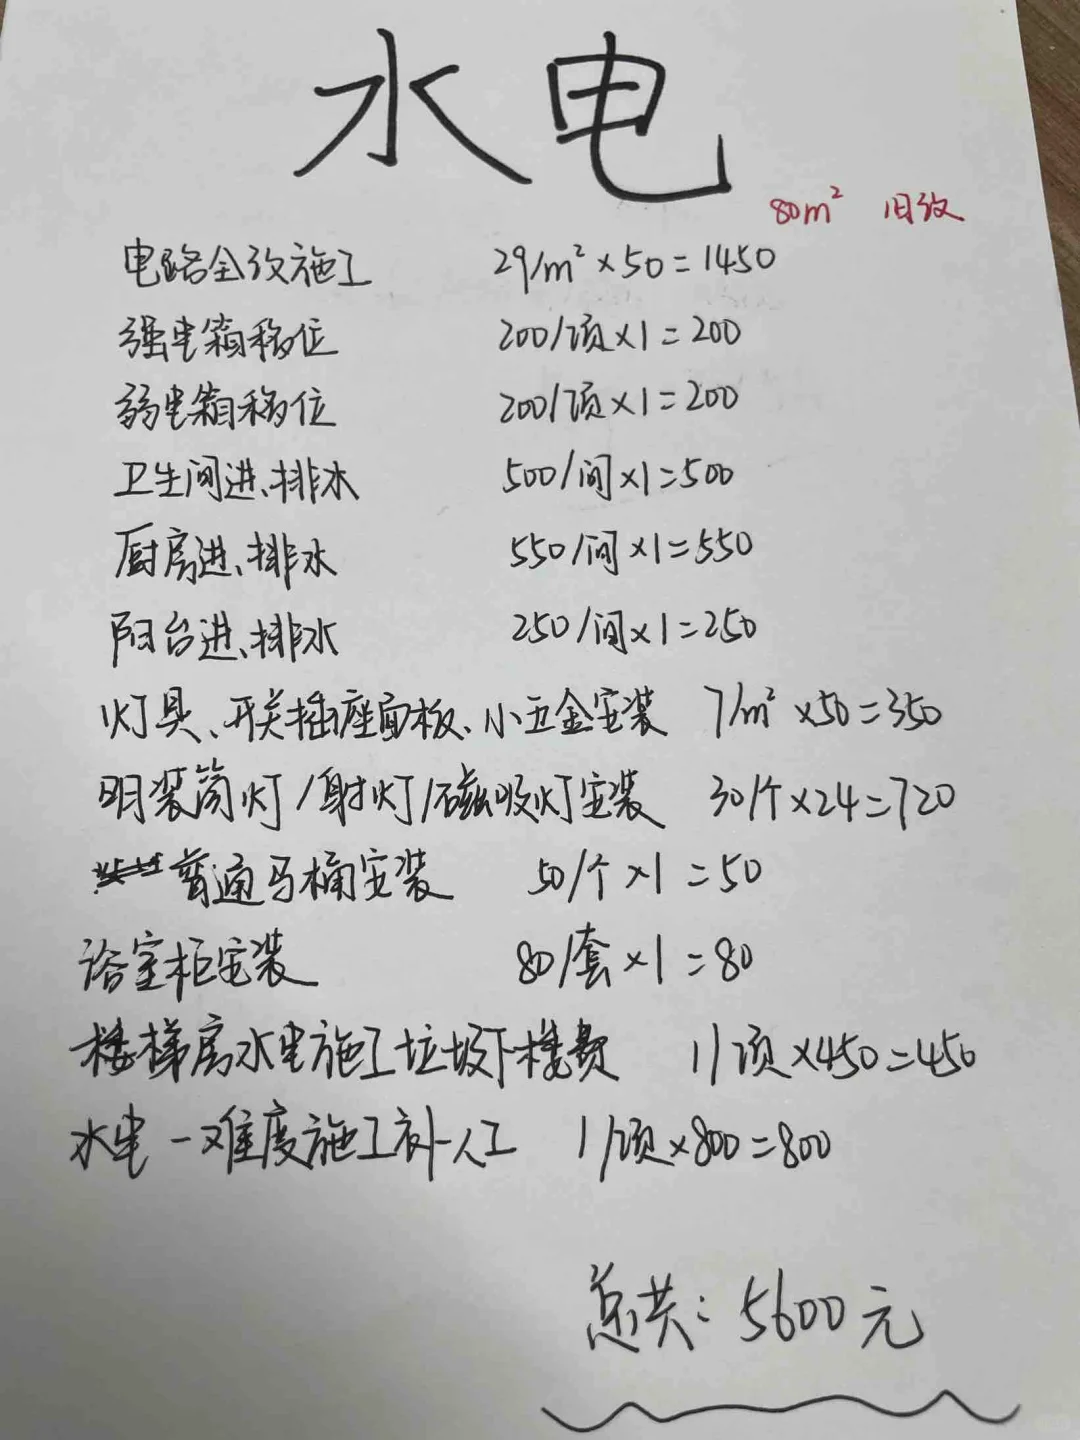 水电
80m² 旧改
电路全改施工 29/m²×50=1450
强电箱移位 200/项×1=200
弱电箱移位 200/项×1=200
卫生间进、排水 500/间×1=500
厨房进、排水 550/间×1=550
阳台进、排水 250/间×1=250
灯具、开关插座面板、小五金安装 7/m²×50=350
明装筒灯/射灯/磁吸灯安装 30/个×24=720
普通马桶安装 50/个×1=50
浴室柜安装 80/套×1=80
楼梯房水电施工垃圾下楼费 1/项×450=450
水电一难度施工补人工 1/项×800=800
总共：5600元